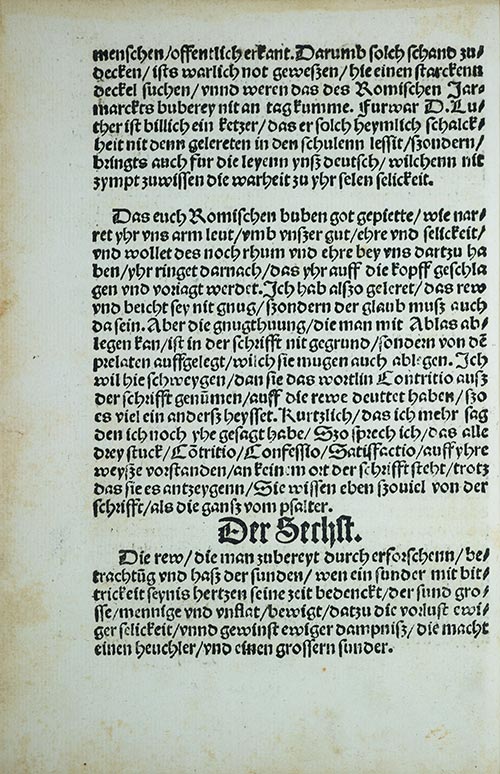 menschen/offentlich erkant. Darumb solch schand zu⸗
decken/ ists warlich not geweszen/ hie einen starckenn
deckel suchen/ vnnd weren das des Romischen Jar⸗
marckts buberey nit an tag kumme. Furwar D. Lu⸗
ther ist billich ein ketzer/ das er solch heymlich schalck⸗
heit nit denn gelereten in den schulenn lessit/ szondern/
bringts auch fur die leyenn ynsz deutsch/ wilchenn nit
zympt zuwissen die warheit zu yhr selen selickeit.
Das euch Romischen buben got gepiette/ wie nar⸗
ret yhr vns arm leut/ vmb vnszer gut/ ehre vnd selickeit/
vnd wollet des noch rhum vnd ehre bey vns dartzu ha
ben/ yhr ringet darnach/ das yhr auff die kopff geschla
gen vnd voriagt werdet. Ich hab alszo geleret/ das rew
vnd beicht sey nit gnug/ szondern der glaub musz auch
da sein. Aber die gnugthuung/ die man mit Ablas ab⸗
legen kan/ ist in der schrifft nit gegrund/ sondern von dē
prelaten auffgelegt/ wilch sie mugen auch ablegen. Ich
wil hie schweygen/ dan sie das wortlin Contritio ausz
der schrifft genūmen/ auff die rewe deuttet haben/ szo
es viel ein andersz heysset. Kurtzlich/ das ich mehr sag
den ich noch yhe gesagt habe/ Szo sprech ich/ das alle
drey stuck/ Cōtritio/ Confessio/ Satisfactio/ auff yhre
weysze vorstanden/ an keinem ort der schrifft steht/ trotz
das sie es antzeygenn/ Sie wissen eben szouiel von der
schrifft/ als die gansz vom psalter.
Der Sechst.
Die rew/ die man zubereyt durch erforschenn/ be⸗
trachtūg vnd hasz der sunden/ wen ein sunder mit bit⸗
trickeit seynis hertzen seine zeit bedenckt/ der sund gro⸗
sse/ mennige vnd vnflat/ bewigt/ datzu die vorlust ewi⸗
ger selickeit/ vnnd gewinst ewiger dampnisz/ die macht
einen heuchler/ vnd einen grossern sunder.